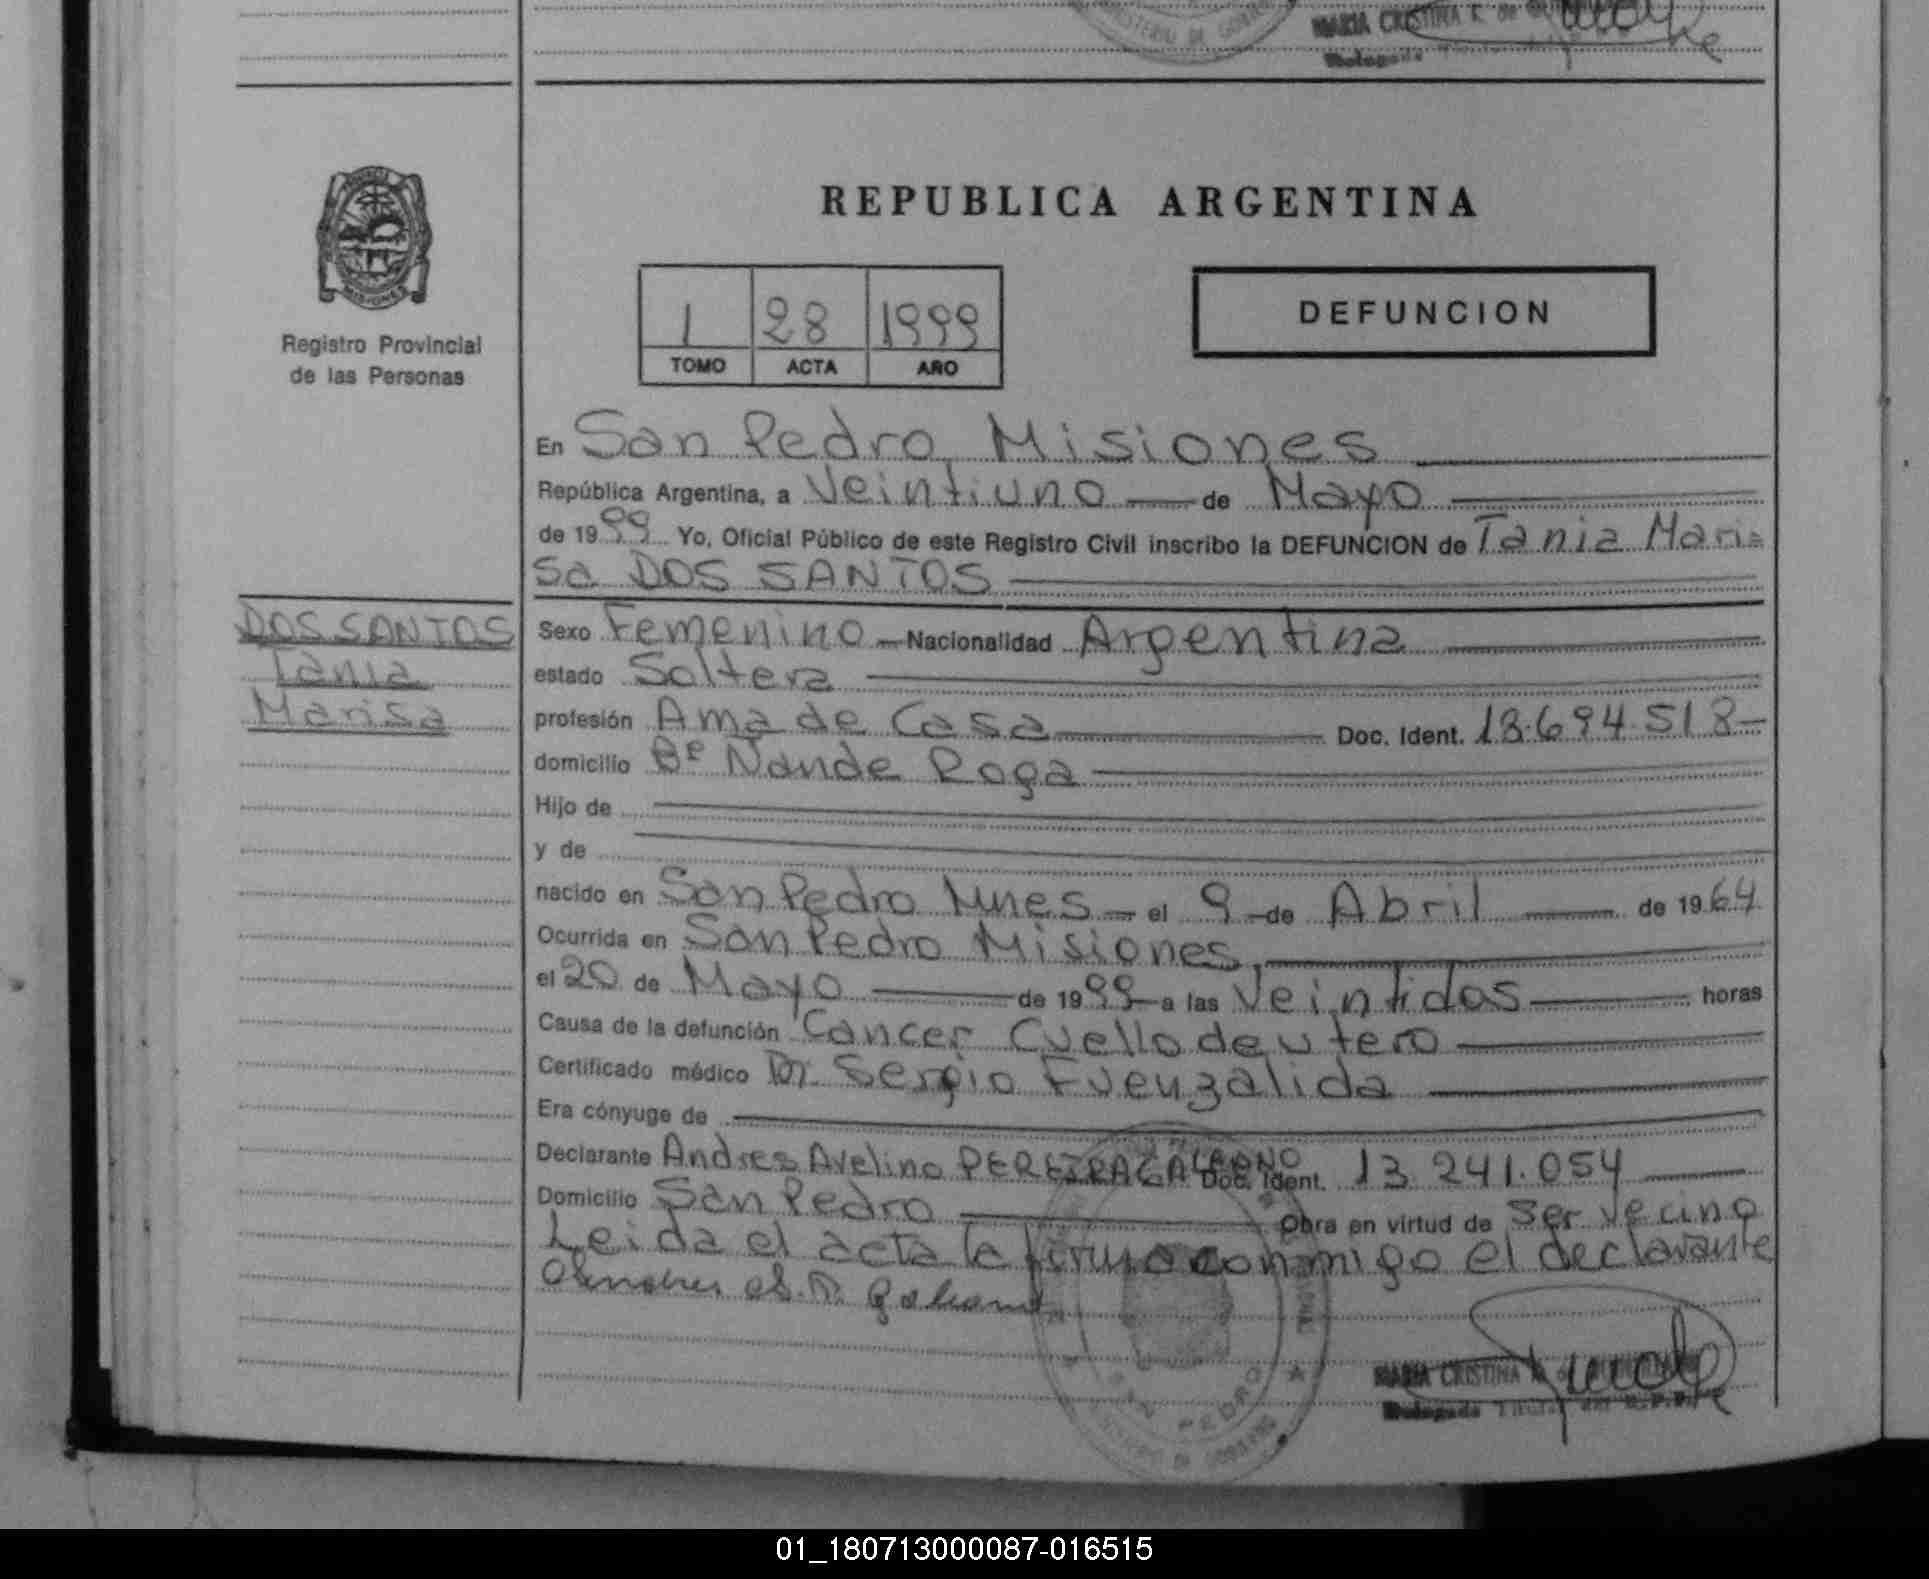 MARIA CRISTINA
REPUBLICA ARGENTINA
1 28 1999
TOMO ACTA AÑO
DEFUNCION
MISIONES
Registro Provincial
de las Personas
En San Pedro, Misiones
República Argentina, a Veintiuno de Mayo
de 1999 Yo, Oficial Público de este Registro Civil inscribo la DEFUNCION de Tania Mari=
sa DOS SANTOS
DOS SANTOS
Tania
Marisa
Sexo Femenino Nacionalidad Argentina
estado Soltera
profesión Ama de Casa Doc. Ident. 18.694.518
domicilio Bº Ñande Roga
Hijo de
y de
nacido en San Pedro Mnes el 9 de Abril de 1964
Ocurrida en San Pedro Misiones,
el 20 de Mayo de 1999 a las Veintidos horas
Causa de la defunción Cancer Cuello de utero
Certificado médico Dr. Sergio Fuenzalida
Era cónyuge de
Declarante Andres Avelino PEREIRA GALEANO Doc. Ident. 13.241.054
Domicilio San Pedro Obra en virtud de ser vecino
Leida el acta la firma conmigo el declarante
SAN PEDRO
MARIA CRISTINA
Delegada Titular del R.P.P.
01_180713000087-016515